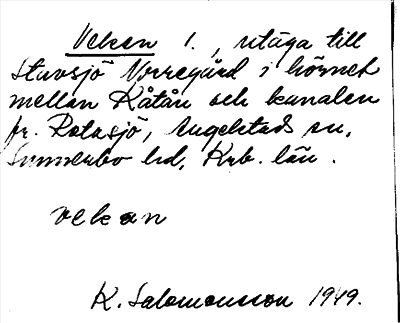 Vekan 1., utäga till
Stavsjö Norregård i hörnet
mellan Kåtån och kanalen
fr. Rotasjö, Angelstads sn,
Sunnerbo hd, Krb. län.
vekan
K. Salomonsson 1949.